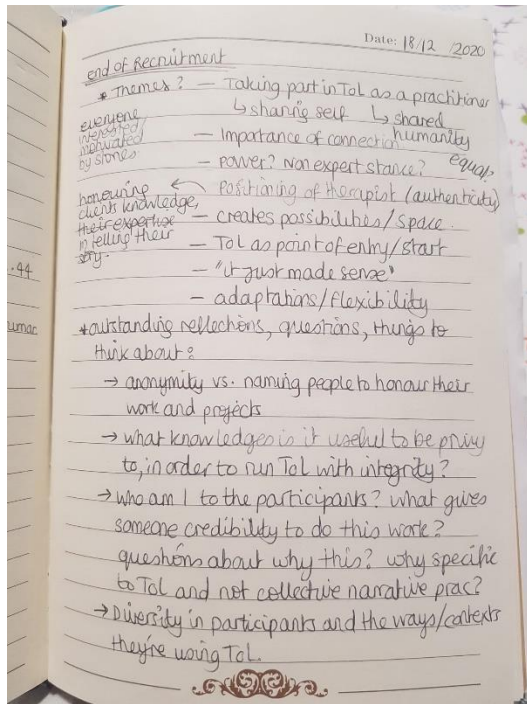 Date: 18/12 /2020
end of Recruitment
* Themes? – Taking part in ToL as a practitioner
↳ sharing self ↳ shared humanity
everyone
interested
motivated
by stories
– Importance of connection
equal
– power? Non expert stance?
Positioning of therapist (authenticity)
honouring
clients knowledge,
their expertise
in telling their
story.
– creates possibilities/space.
– ToL as point of entry/start
– "it just made sense"
– adaptations/flexibility
.44
umac
* outstanding reflections, questions, things to
think about?
→ anonymity vs. naming people to honour their
work and projects
→ what knowledges is it useful to be privy
to, in order to run ToL with integrity?
→ who am I to the participants? what gives
someone credibility to do this work?
questions about why this? why specific
to ToL and not collective narrative prac?
→ Diversity in participants and the ways/contexts
they're using ToL.